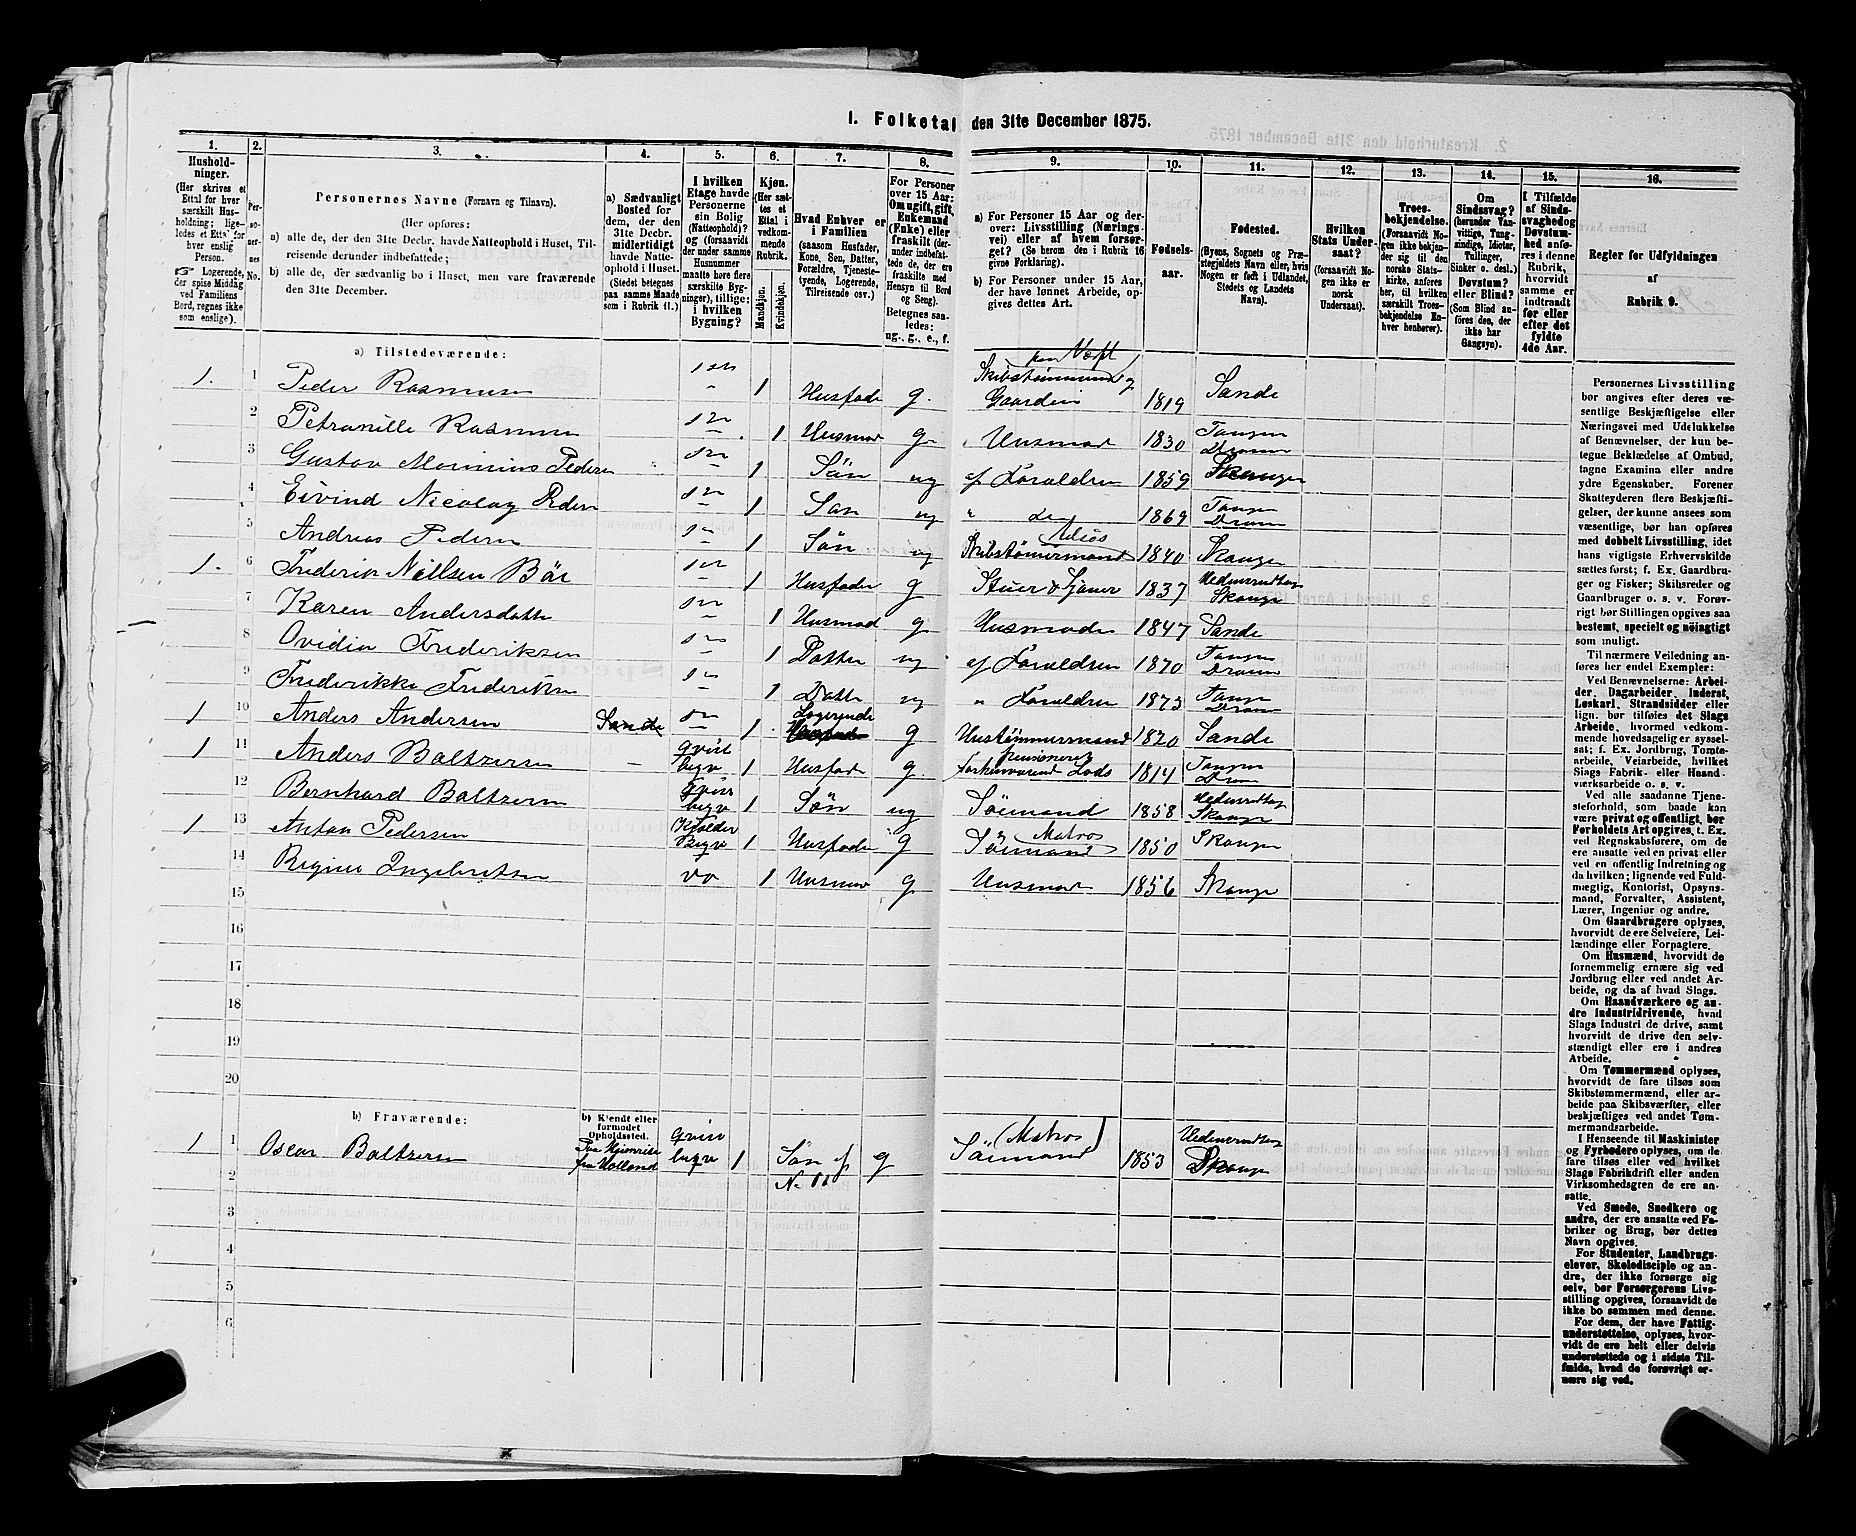 1. Folketal den 31te December 1875.
1. 2. 3. 4. 5. 6. 7. 8. 9. 10. 11. 12. 13. 14. 15. 16.
Hushold-
ninger.
(Her skrives et
Ettal for hver
særskilt Hus-
holdning; lige-
ledes et Ettal for
hver enslig
Person.
☞ Logerende,
der spise Middag
ved Familiens
Bord, regnes ikke
som enslige).
Per-
so-
ner-
nes
No.
Personernes Navne (Fornavn og Tilnavn).
(Her opføres:
a) alle de, der den 31te Decbr. havde Natteophold i Huset, Til-
reisende derunder indbefattede;
b) alle de, der sædvanlig bo i Huset, men vare fraværende
den 31te December.
a) Sædvanligt
Bosted for
dem, der den
31te Decbr.
midlertidigt
havde Natte-
ophold i Huset.
(Stedet betegnes
paa samme Maade
som i Rubrik 11.)
I hvilken
Etage havde
Personerne
sin Bolig
(Natteophold)?
og (forsaavidt
der under samme
Husnummer
maatte høre flere
særskilte Byg-
ninger), tillige:
i hvilken
Bygning?
Kjøn.
(Her sæt-
tes et
Ettal i
vedkom-
mende
Rubrik.
Mandkjøn.
Kvindekjøn.
Hvad Enhver er
i Familien
(saasom Husfader,
Kone, Søn, Datter,
Forældre, Tjeneste-
tyende, Logerende,
Tilreisende osv.)
For Personer
over 15 Aar:
Om ugift, gift,
Enkemand
(Enke) eller
fraskilt (der-
under indbefat-
tede de, der ere
fraskilte med
Hensyn til Bord
og Seng).
Betegnes saa-
ledes:
ug., g., e., f.
a) For Personer 15 Aar og der-
over: Livsstilling (Nærings-
vei) eller af hvem forsør-
get? (Se herom den i Rubrik 16
givne Forklaring).
b) For Personer under 15 Aar,
der have lønnet Arbeide, op-
gives dettes Art.
Fødsels-
aar.
Fødested.
(Byens, Sognets og Præ-
stegjeldets Navn eller, hvis
Nogen er født i Udlandet,
Stedets og Landets
Navn).
Hvilken
Stats Under-
saat?
(forsaavidt No-
gen ikke er
norsk
Undersaat).
Troes-
bekjendelse.
(Forsaavidt No-
gen ikke bekjen-
der sig til den
norske Stats-
kirke, anføres
her, til hvilken
særskilt Troes-
bekjendelse En-
hver henhører).
Om
Sindssvag?
(herunder Van-
vittige, Tung-
sindige, Idioter,
Tullinger,
Sinker o. desl.)
Døvstum?
eller Blind?
(Som Blind an-
føres den, der
ikke har
Gangsyn).
I Tilfælde
af Sinds-
svaghed og
Døvstum-
hed anfø-
res i denne
Rubrik,
hvorvidt
samme er
indtraadt
før eller
efter det
fyldte
4de Aar.
Regler for Udfyldningen
af
Rubrik 9.
a) Tilstedeværende:
1. 1 Peder Rasmusen 1 Husfade g. Skibstømmermand og Gaarden 1819 Sande
2 Petronille Rasmusen 1 Husmod g. Husmoder 1830 Tangen Dramn
3 Gustav Morinius Pedersen 1 Søn ug af Foraldren 1859 Skouger
4 Eivind Nicolay Pedersen 1 Søn ug " do 1869 Tangen Dramn
5 Andreas Pedersen 1 Søn ug Skibstømmermand 1840 Skouger
1. 6 Frederik Nillsen Bøe 1 Husfader g 1837 Skouger
7 Karen Andersdatter 1 Husmod g Husmoder 1847 Sande
8 Ovidia Frederiksen 1 Datter ug af Foraldren 1870 Tangen Dramn
9 Frederikke Frederiksen 1 Datter ug " Foraldren 1873 Tangen Dramn
1 10 Anders Andersen Sande 1 Logerende g Hustømmermand 1820 Sande
1 11 Anders Baltzersen qvist bygn 1 Husfade g pensioneret forhenværend Lods 1814 Tangen Dramn
12 Bernhard Baltzersen qvist bygn 1 Søn ug Sømand 1858 Skouger
1 13 Anton Pedersen Kjelder Bygn 1 Husfade g Sømand Matros 1850 Skouger
14 Regine Ingebretsen do 1 Husmor g Husmod 1856 Skouger
15
16
17
18
19
20
b) Fraværende:
b) Kjendt eller
formodet
Opholdssted.
1 1 Oscar Baltzersen Paa Hjemreise fra Holland qvist bygn 1 Søn af No 11 g Sømand (Matros) 1853 Skouger
2
3
4
5
6
Personernes Livsstilling
bør angives efter deres væ-
sentlige Beskjæftigelse eller
Næringsvei med Udelukkelse
af Benævnelser, der kun be-
tegne Beklædelse af Ombud,
tagne Examina eller andre
ydre Egenskaber. Forener
Skatteyderen flere Beskjæfti-
gelser, der kunne ansees som
væsentlige, bør han opføres
med dobbelt Livsstilling, idet
hans vigtigste Erhvervskilde
sættes først; f. Ex. Gaardbru-
ger og Fisker; Skibsreder og
Gaardbruger o. s. v. Forøv-
rigt bør Stillingen opgives saa
bestemt, specielt og nöiagtigt
som muligt.
Til nærmere Veiledning an-
føres her endel Exempler:
Ved Benævnelserne: Arbei-
der, Dagarbeider, Inderst,
Løskarl, Strandsidder eller
lign. bør tilføies det Slags
Arbeide, hvormed vedkom-
mende hovedsagelig er syssel-
sat; f. Ex. Jordbrug, Tomte-
arbeide, Veiarbeide, hvilket
Slags Fabrik- eller Haand-
værksarbeide o. s. v.
Ved alle saadanne Tjene-
steforhold, som baade kan
være privat og offentligt, bør
Forholdets Art opgives, t. Ex.
ved Regnskabsførere, om de
ere ansatte ved en privat eller
ved en offentlig Indretning og
da hvilken; lignende ved Fuld-
mægtig, Kontorist, Opsyns-
mand, Forvalter, Assistent,
Lærer, Ingeniør og andre.
Om Gaardbrugere oplyses,
hvorvidt de ere Selveiere, Lei-
lændinge eller Forpagtere.
Om Husmænd, hvorvidt de
fornemmelig ernære sig ved
Jordbrug eller ved andet Ar-
beide, og da af hvad Slags.
Om Haandværkere og an-
dre Industridrivende, hvad
Slags Industri de drive, samt
hvorvidt de drive den selv-
stændigt eller ere i andres
Arbeide.
Om Tømmermænd oplyses,
hvorvidt de fare tilsøs som
Skibstømmermænd, eller ar-
beide paa Skibsværfter, eller
beskjæftiges ved andet Tøm-
mermandsarbeide.
I Henseende til Maskinister
og Fyrbødere oplyses, om de
fare tilsøs eller ved hvilket
Slags Fabrikdrift eller anden
Virksomhedsgren de ere an-
satte.
Ved Smede, Snedkere og
andre, der ere ansatte ved Fa-
briker og Brug, bør dettes
Navn opgives.
For Studenter, Landbrugs-
elever, Skoledisciple og an-
dre, der ikke forsørge sig
selv, bør Forsørgerens Livs-
stilling opgives, forsaavidt de
ikke bo sammen med denne.
For dem, der have Fattig-
understøttelse, oplyses, hvor-
vidt de ere helt eller delvis
understøttede og i sidste Til-
fælde, hvad de forøvrigt er-
nære sig ved.